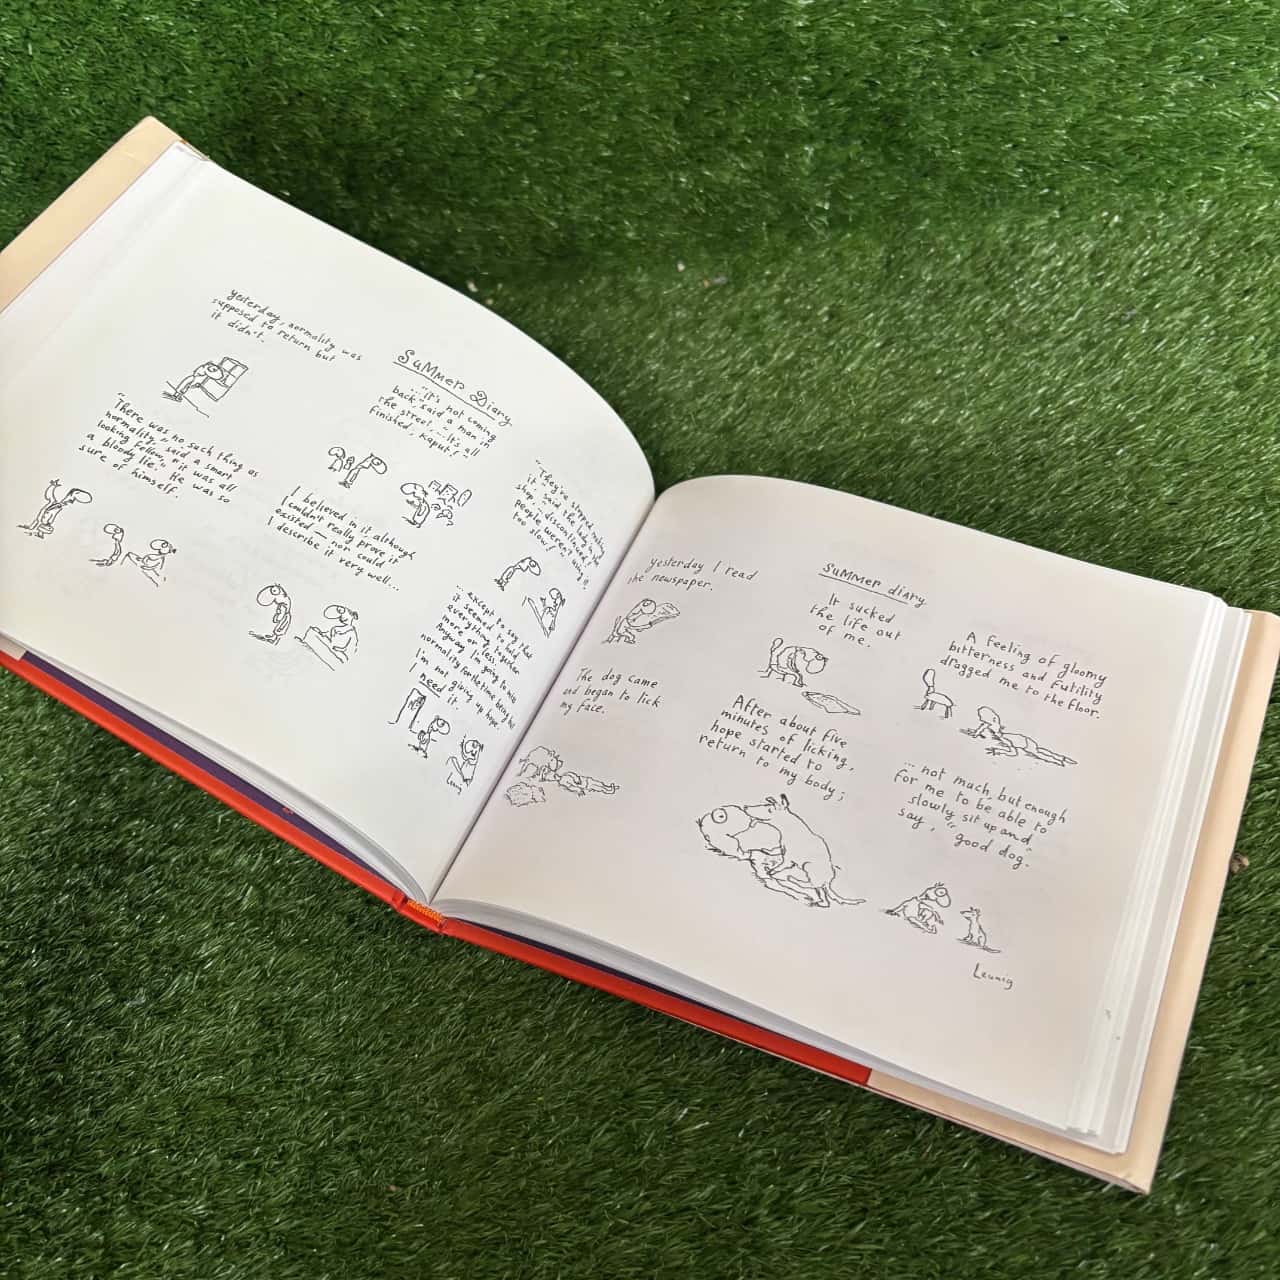 Summer Diary
yesterday, normality was
supposed to return but
it didn't.
"It's not coming
back" said a man in
the street. "It's all
finished, Kaput!"
"They've stopped making
it," said the lady in the
shop. "discontinued,
people weren't using it.
too slow!"
"There was no such thing as
normality," said a smart
looking fellow, "it was all
a bloody lie." He was so
sure of himself.
I believed in it, although
I couldn't really prove it
existed — nor could
I describe it very well...
except to say that
it seemed to hold
everything together
more or less.
Anyway I'm going to miss
normality for the time being but
I'm not giving up hope.
I need it.
Leunig
Summer diary
yesterday I read
the newspaper.
It sucked
the life out
of me.
A feeling of gloomy
bitterness and futility
dragged me to the floor.
The dog came
and began to lick
my face.
After about five
minutes of licking,
hope started to
return to my body;
... not much, but enough
for me to be able to
slowly sit up and
say, "good dog."
Leunig